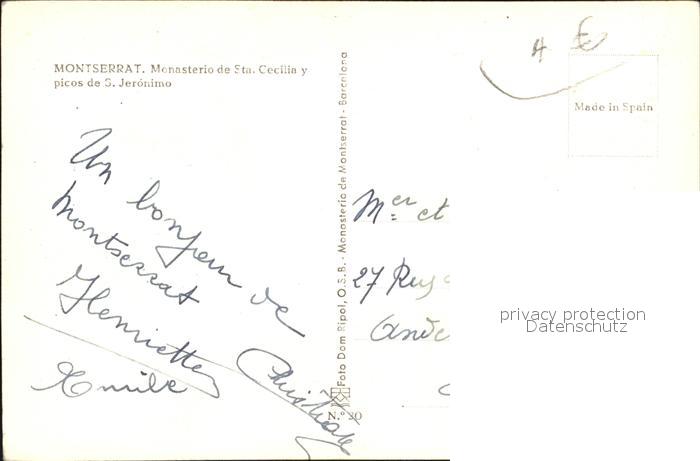 MONTSERRAT. Monasterio de Sta. Cecilia y
picos de S. Jerónimo
Un bonjour de
Montserrat
Henriette
Emile
Christiane
Foto Dom Ripol, O.S.B. - Monasterio de Montserrat - Barcelona
N.° 30
4 €
Made in Spain
Mer et
27 Rue
privacy protection
Datenschutz